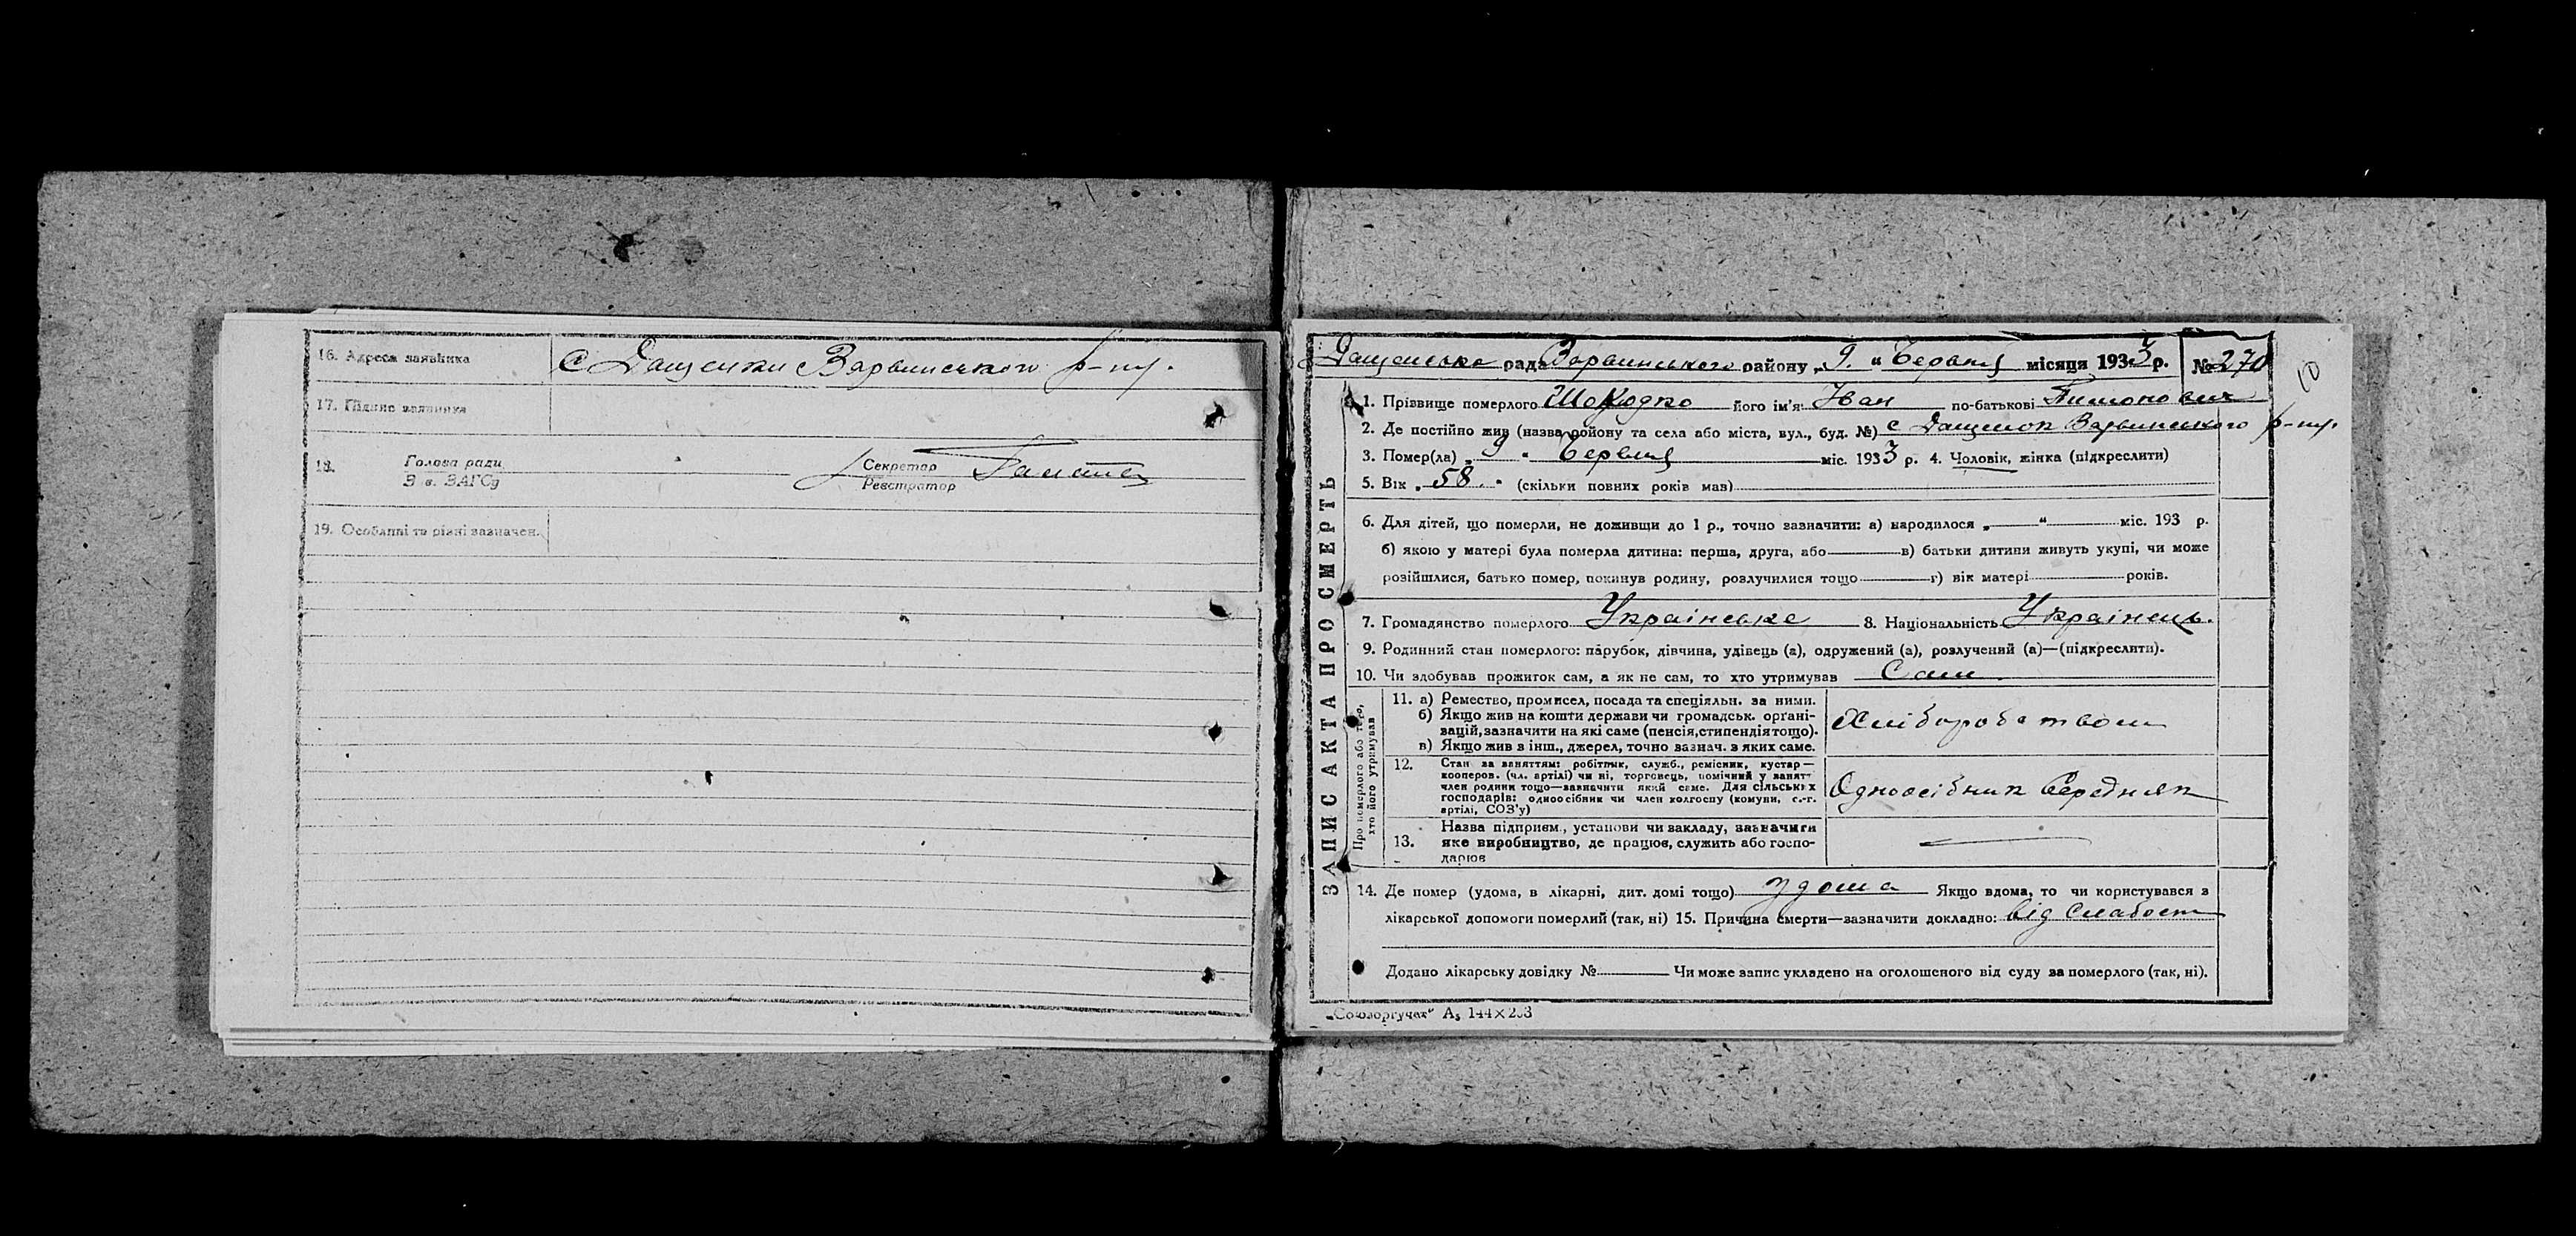 16. Адреса заявника с Дащенки Варвинського р-ну.
17. Підпис заявника
18. Голова ради Секретар
З в. ЗАГСу Реєстратор
19. Особливі та різні зазначен.
Дащенська рада Варвинського району „9" Червня місяця 1933 р. № 270
10
ЗАПИС АКТА ПРО СМЕРТЬ
1. Прізвище померлого його ім'я Іван по-батькові Тимонович
2. Де постійно жив (назва району та села або міста, вул., буд. №) с Дащенок Варвинського р-ну.
3. Помер(ла) „9" Червня міс. 1933 р. 4. Чоловік, жінка (підкреслити)
5. Вік „58" (скільки повних років мав)
6. Для дітей, що померли, не доживши до 1 р., точно зазначити: а) народилося „ " міс. 193 р.
б) якою у матері була померла дитина: перша, друга, або в) батьки дитини живуть укупі, чи може
розійшлися, батько помер, покинув родину, розлучилися тощо г) вік матері років.
7. Громадянство померлого Українське 8. Національність Українець.
9. Родинний стан померлого: парубок, дівчина, удівець (а), одружений (а), розлучений (а)—(підкреслити).
10. Чи здобував прожиток сам, а як не сам, то хто утримував Сам
Про померлого або того, хто його утримував
11. а) Ремество, промисел, посада та спеціяльн. за ними.
б) Якщо жив на кошти держави чи громадськ. органі-
зацій, зазначити на які саме (пенсія, стипендія тощо).
в) Якщо жив з інш., джерел, точно зазнач. з яких саме.
Хліборобством
12. Стан за заняттям: робітник, служб., ремісник, кустар—
кооперов. (чл. артілі) чи ні, торговець, помічний у занятт
член родини тощо—зазначити який саме. Для сільських
господарів: одноосібник чи член колгоспу (комуни, с.-г.
артілі, СОЗ'у)
Одноосібник Середняк
13. Назва підприєм., установи чи закладу, зазначити
яке виробництво, де працює, служить або госпо-
дарює
14. Де помер (удома, в лікарні, дит. домі тощо) удома Якщо вдома, то чи користувався з
лікарської допомоги померлий (так, ні) 15. Причина смерти—зазначити докладно: від Слабост
Додано лікарську довідку № Чи може запис укладено на оголошеного від суду за померлого (так, ні).
„Союзоргучет" А₅ 144×203